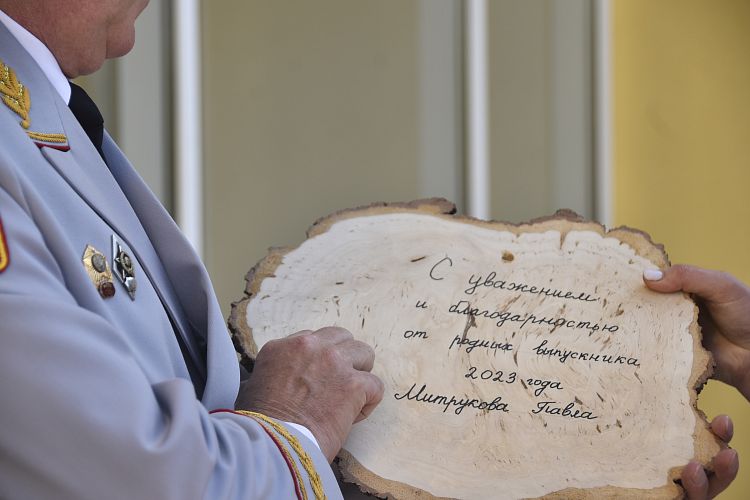 С уважением
и благодарностью
от родных выпускника
2023 года
Митрукова Павла